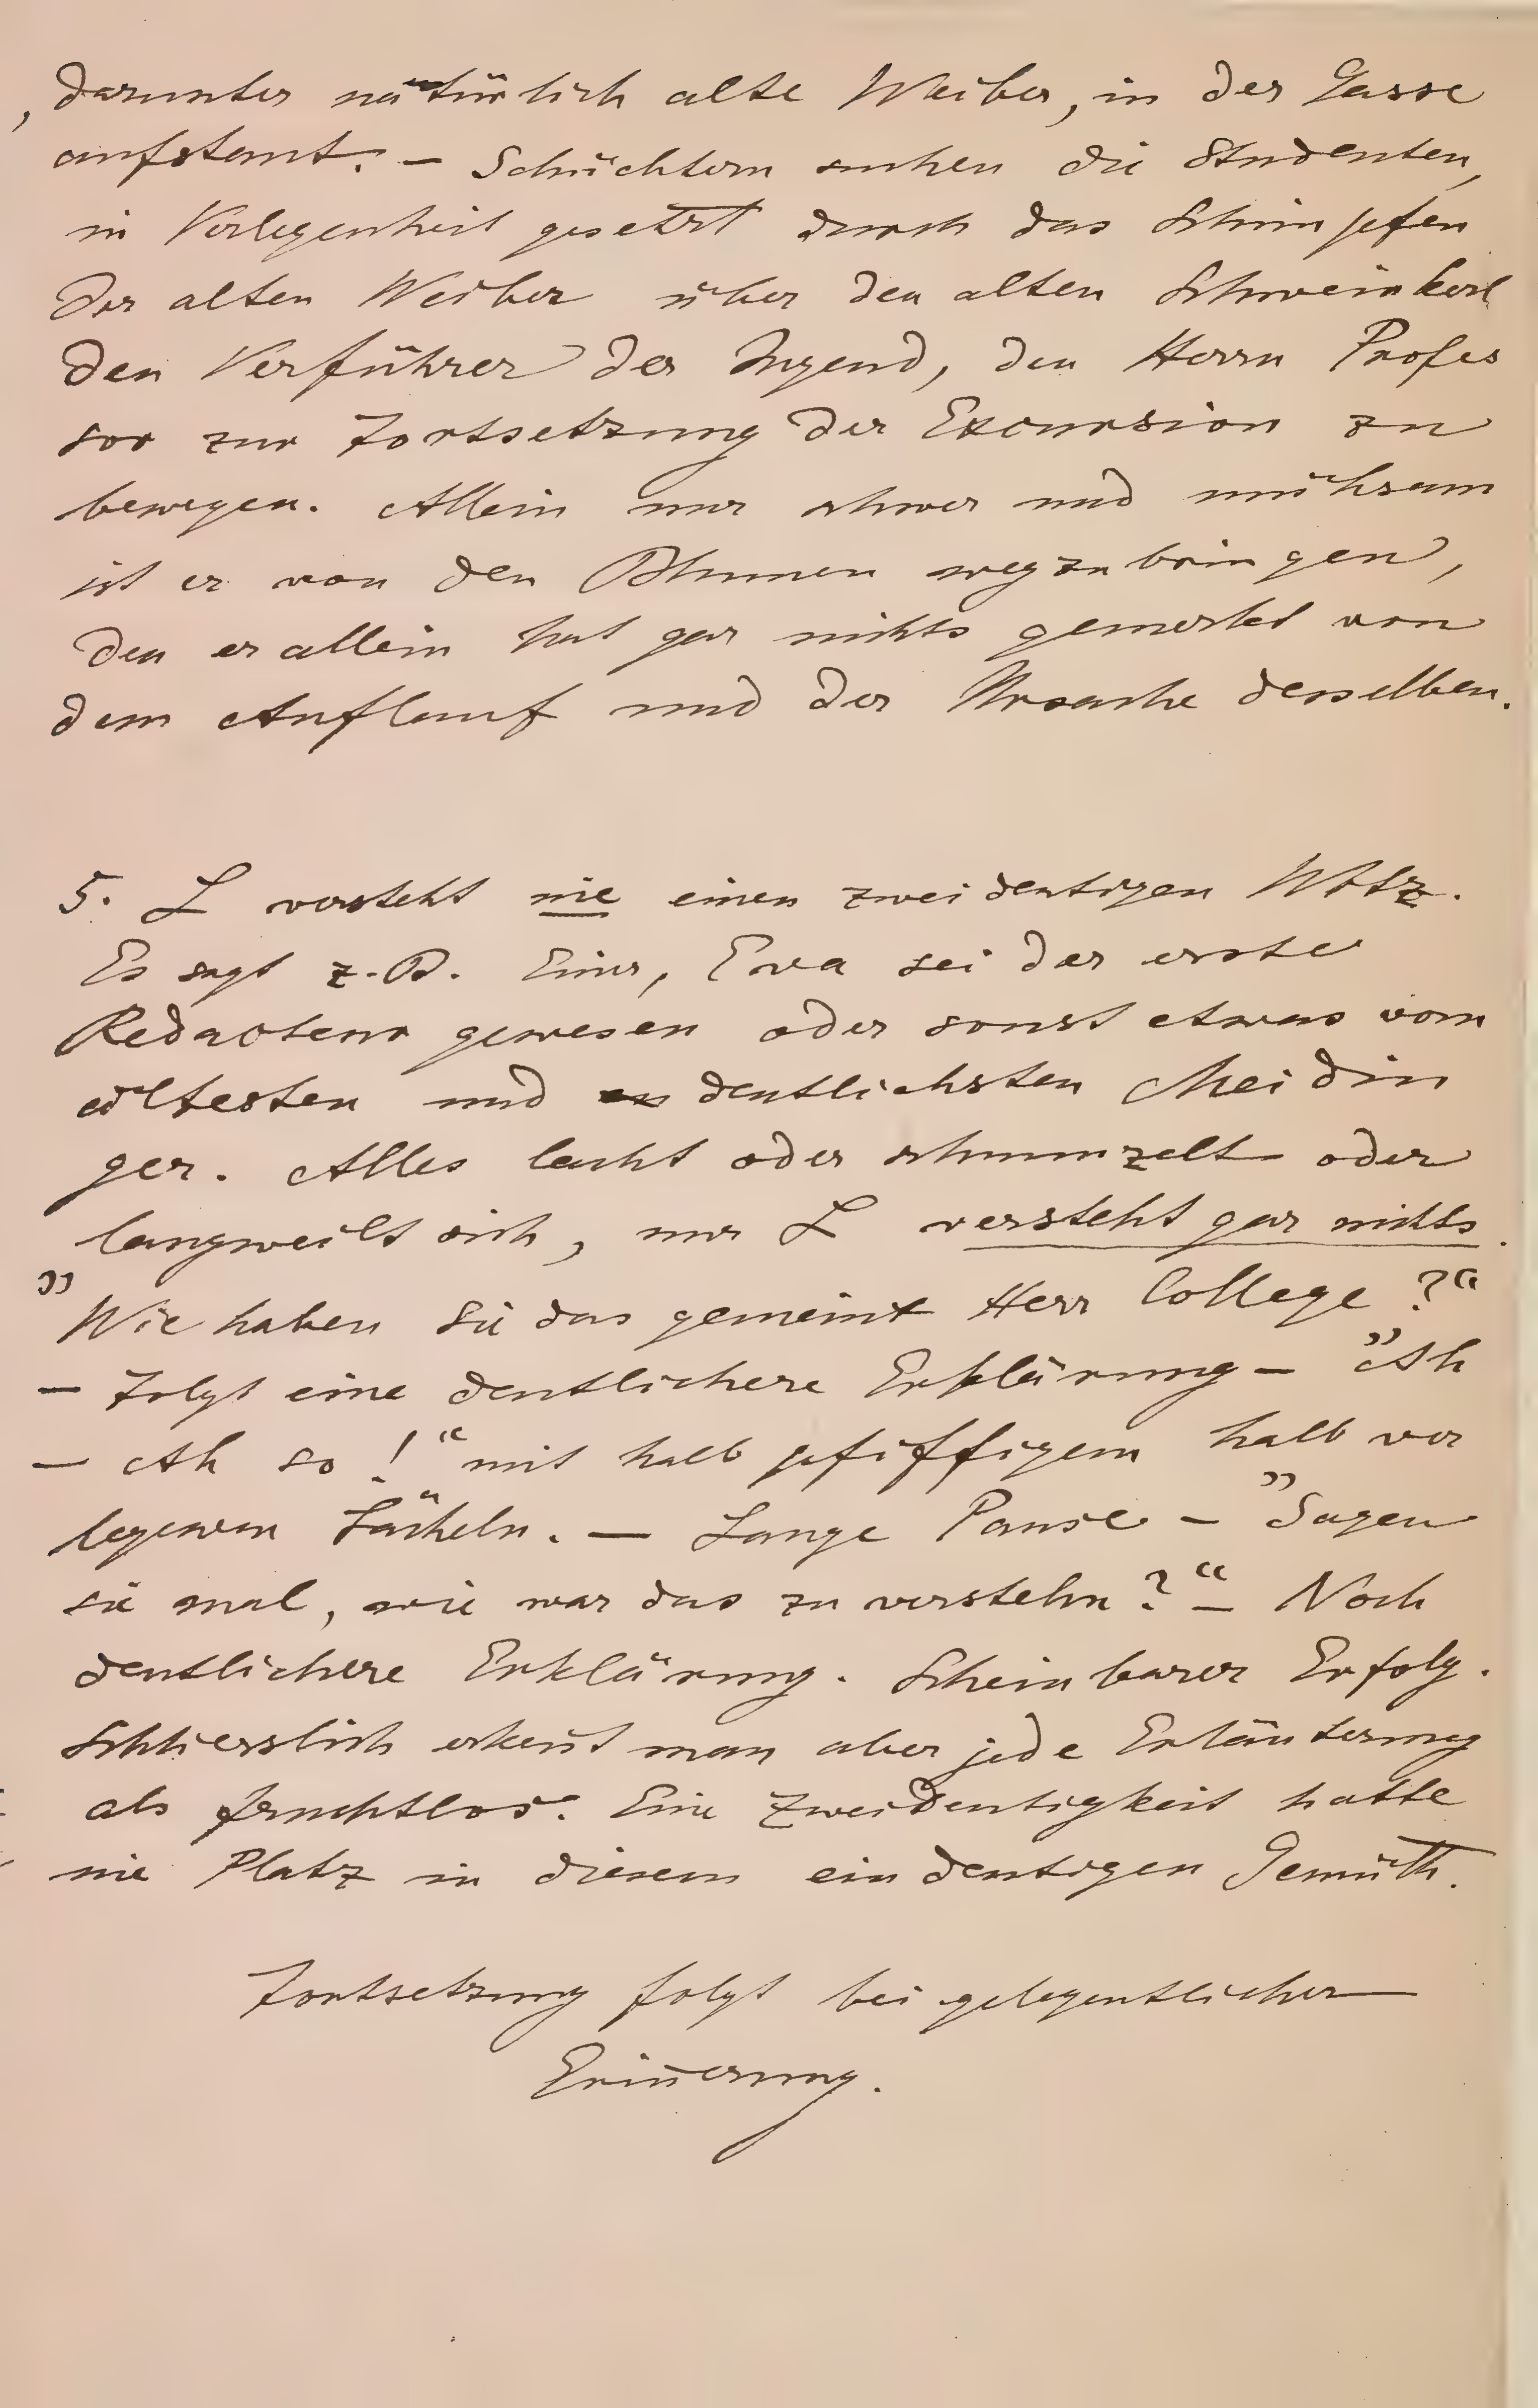 , darunter natürlich alte Weiber, in der Gasse
aufstaut. – Schüchtern suchen die Studenten,
in Verlegenheit gesetzt durch das Schimpfen
der alten Weiber über den alten Schweinkerl
den Verführer der Jugend, den Herrn Profes
sor zur Fortsetzung der Excursion zu
bewegen. Allein nur schwer und mühsam
ist er von den Blumen wegzubringen,
den er allein hat gar nichts gemerkt von
dem Auflauf und der Ursache desselben.
5. L versteht nie einen zweideutigen Witz.
Es sagt z.B. Einer, Eva sei der erste
Redacteur gewesen oder sonst etwas vom
ältesten und deutlichsten Meidin
ger. Alles lacht oder schmunzelt oder
langweilt sich, nur L versteht gar nichts.
„Wie haben Sie das gemeint Herr College?“
– Folgt eine deutlichere Erklärung – „Ah
– Ah so!“ mit halb pfiffigem halb ver
legenem Lächeln. – Lange Pause – „Sagen
sie mal, wie war das zu verstehn?“ – Noch
deutlichere Erklärung. Scheinbarer Erfolg.
Schliesslich erkeñt man aber jede Erläuterung
als fruchtlos. Eine Zweideutigkeit hatte
nie Platz in diesem eindeutigen Gemüth.
Fortsetzung folgt bei gelegentlicher
Eriñerung.